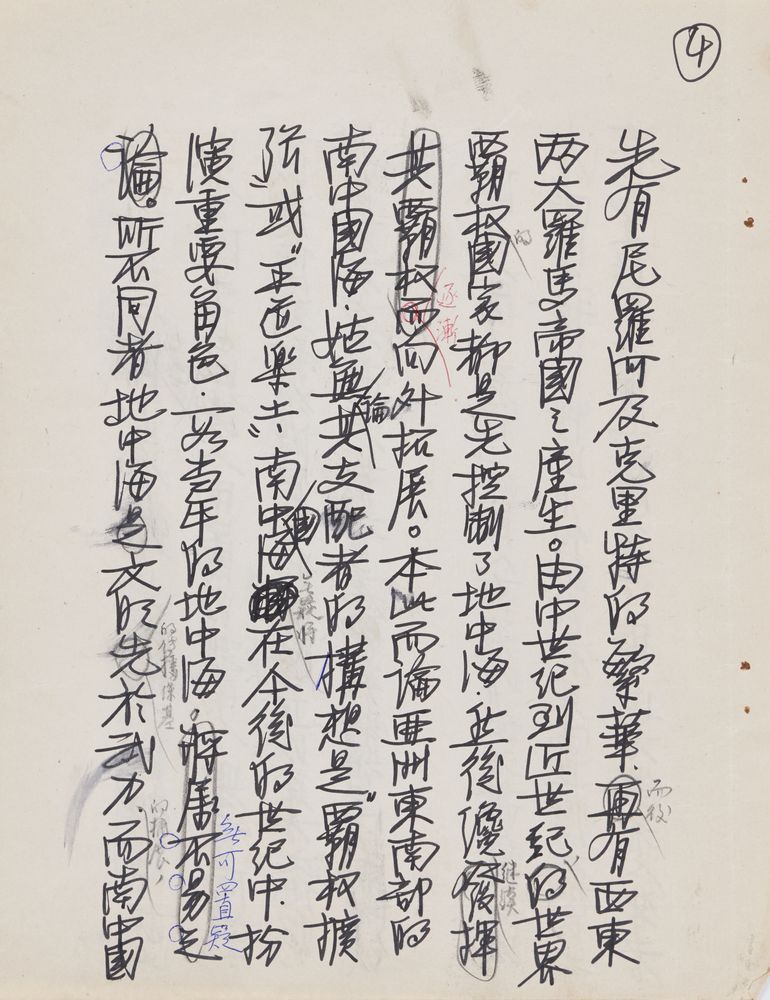 4
先有尼羅河及克里特的繁華,再有西東
而後
兩大羅馬帝國之產生。由中世紀到近世紀的世界
霸權國家都是先控制了地中海,然後纔發揮
的
繼續
其霸權而向外拓展。本此而論亞洲東南部的
逐漸
南中國海,姑無論其支配者的構想是“霸權擴
張”或“王道樂土”南中國海在今後的世紀中,扮
主義將
演重要角色,一如當年的地中海。將屬不易之
無可置疑
論。所不同者地中海是文明先於武力,而南中國